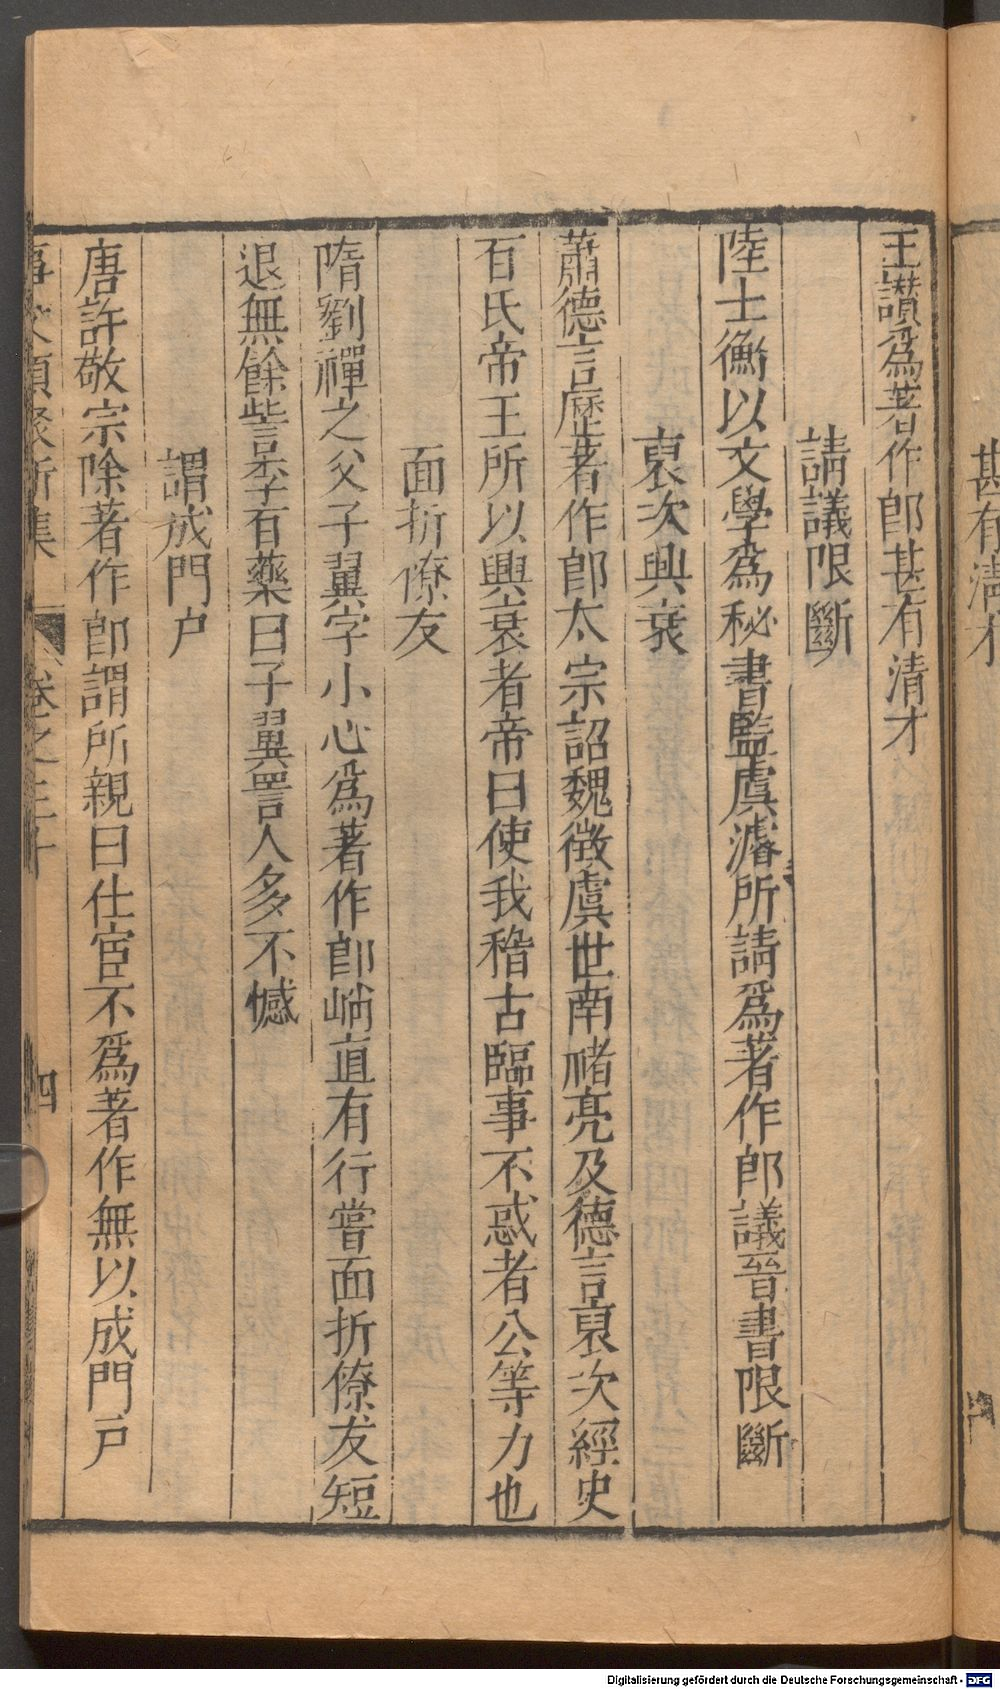 甚有清才
王讃爲著作郎甚有清才
請議限斷
陸士衡以文學爲秘書監虞濬所請爲著作郎議晉書限斷
裒次興衰
蕭德言歷著作郎太宗詔魏徵虞世南禇亮及德言裒次經史
百氏帝王所以興衰者帝曰使我稽古臨事不惑者公等力也
面折僚友
隋劉禪之父子翼字小心爲著作郎峭直有行嘗面折僚友短
退無餘訾李百藥曰子翼詈人多不憾
謂成門户
唐許敬宗除著作郎謂所親曰仕宦不爲著作無以成門户
事文類聚新集
卷之三十
四
Digitalisierung gefördert durch die Deutsche Forschungsgemeinschaft - DFG